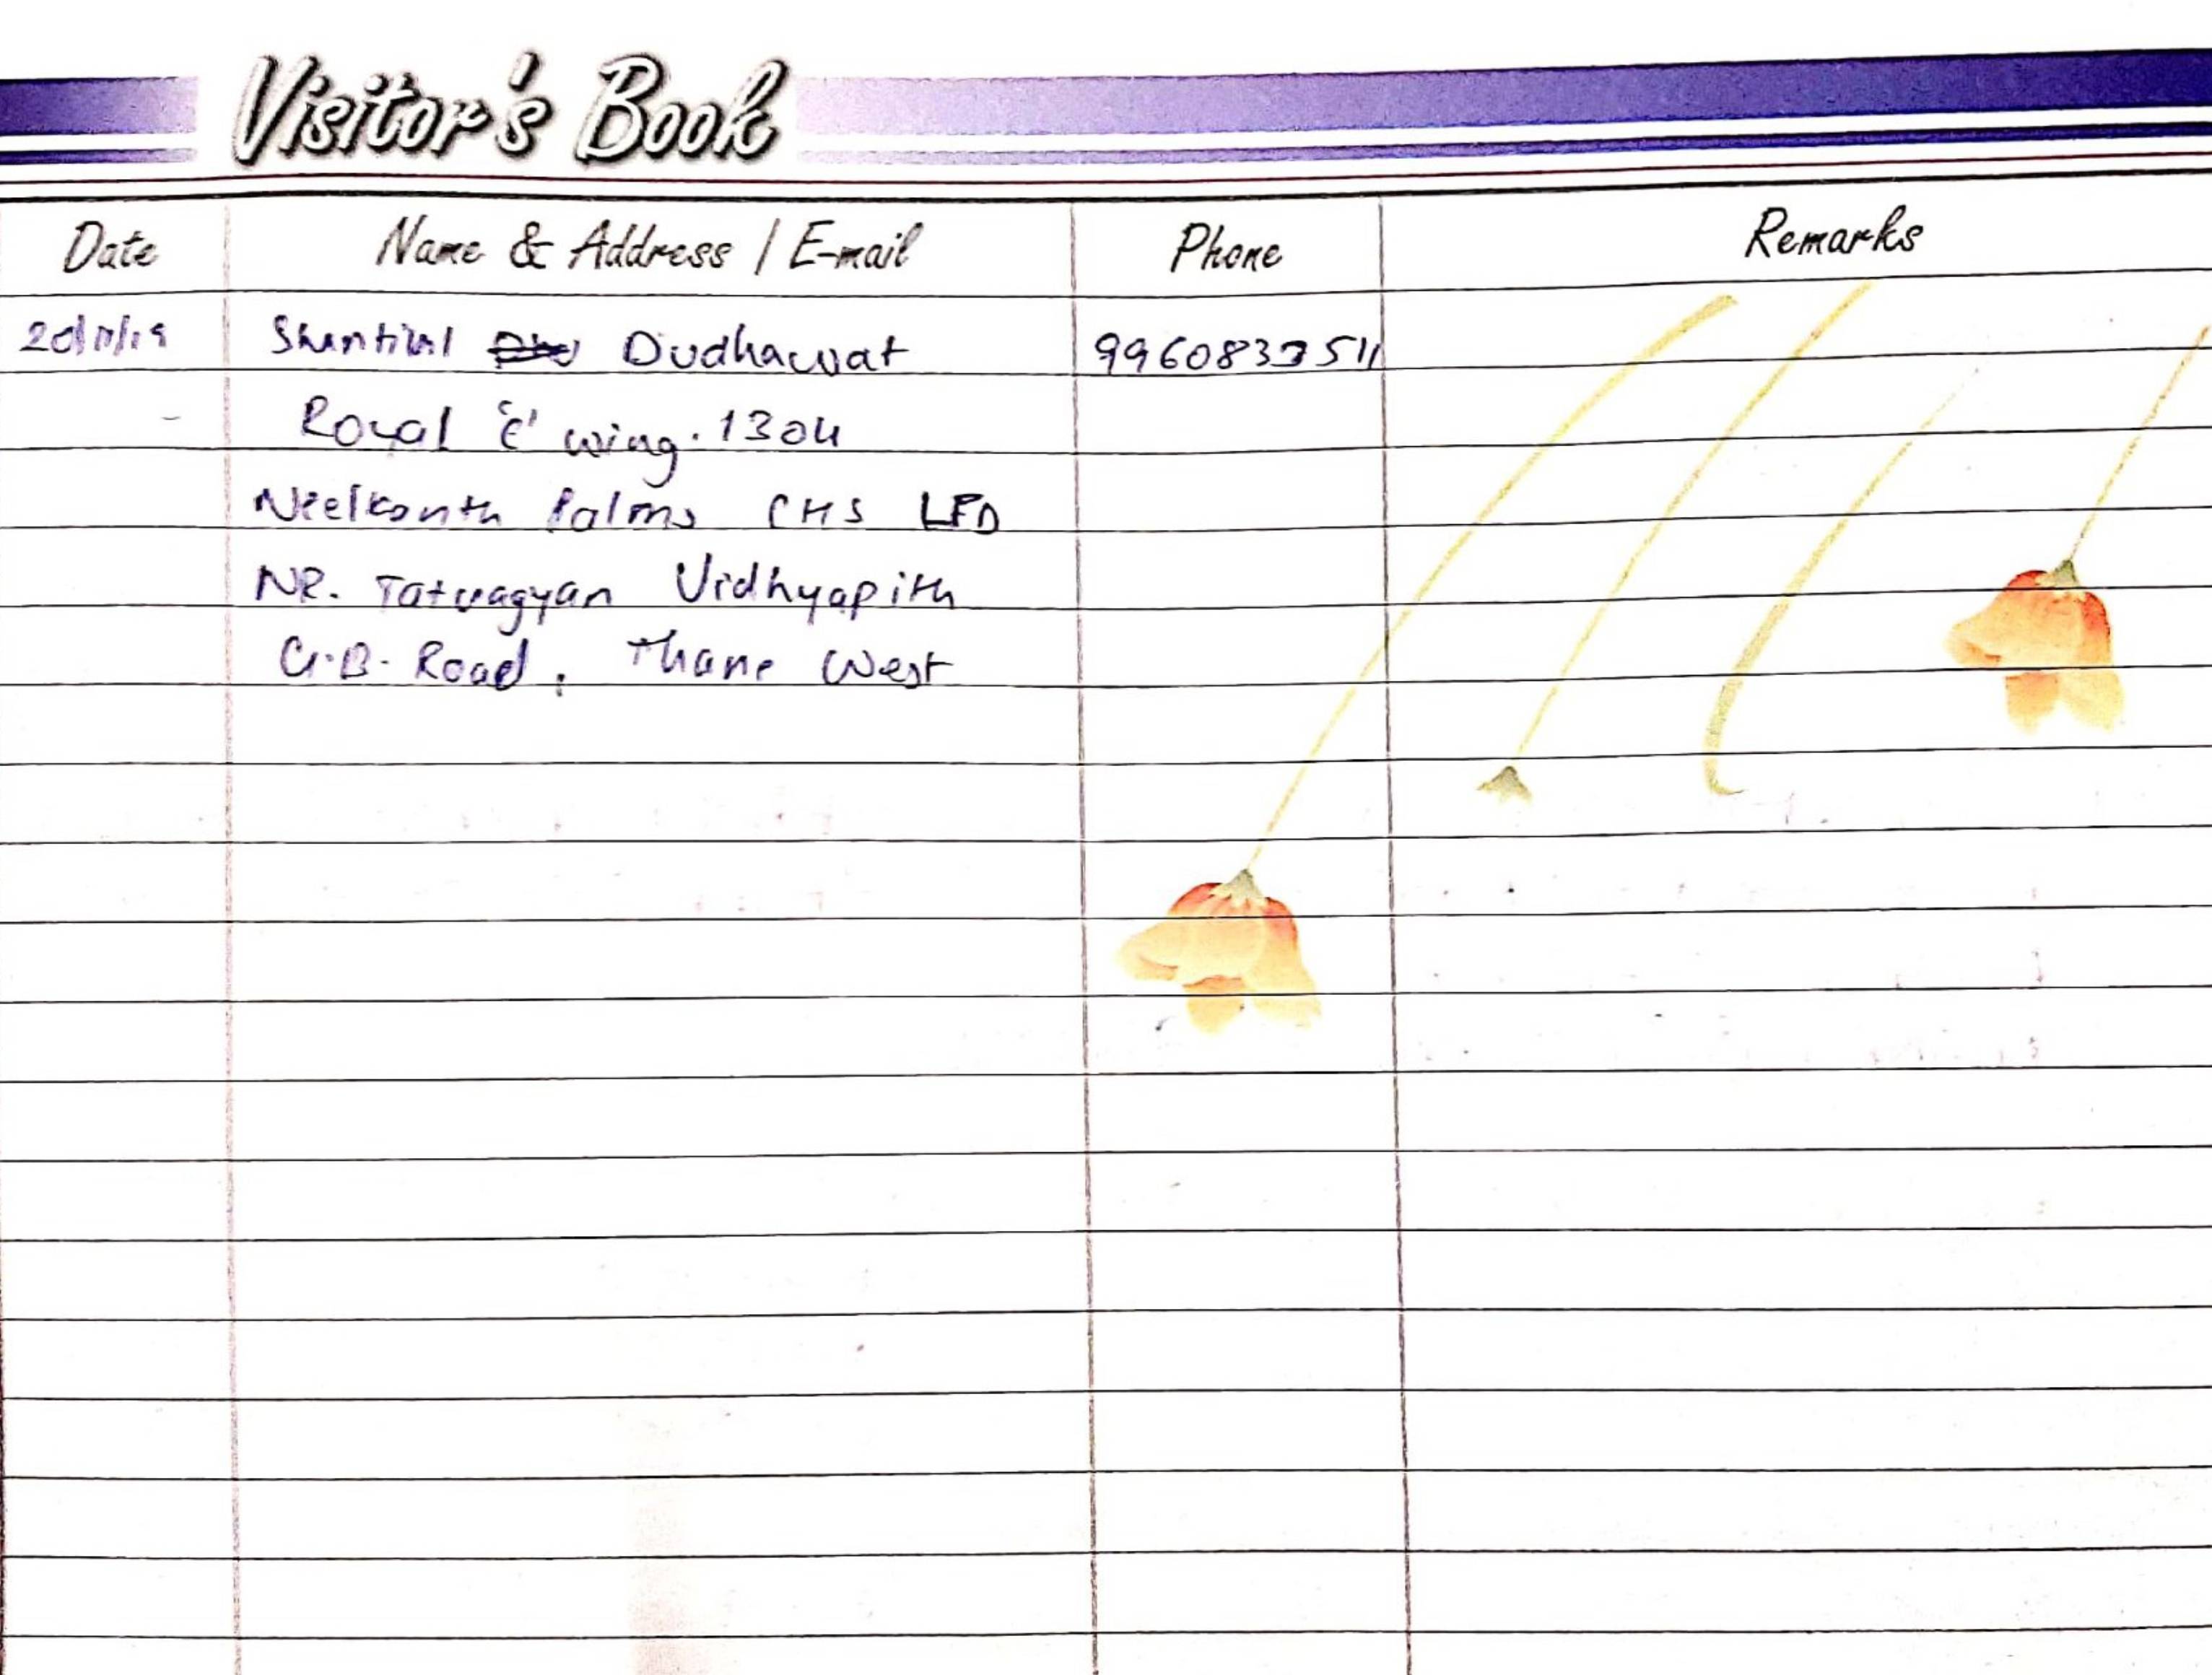 Visitor's Book
Date Name & Address / E-mail Phone Remarks
20/11/19 Shantilal Dudhawat
Royal 'C' wing. 1304
Neelkanth Palms CHS LTD
NR. Tatvagyan Vidhyapith
G.B. Road, Thane West